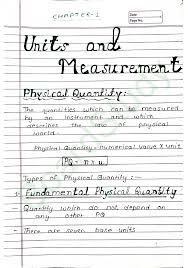 CHAPTER-1
Date
Page No.
Units and
Measurement
Physical Quantity:-
The quantities which can be measured
by an instrument and which
describes the law of physical
world.
Physical Quantity = numerical value X unit
PQ = n x u
Types of Physical Quantity :-
1. Fundamental Physical Quantity
Quantity which do not depend on
any other PQ
→ There are seven base units